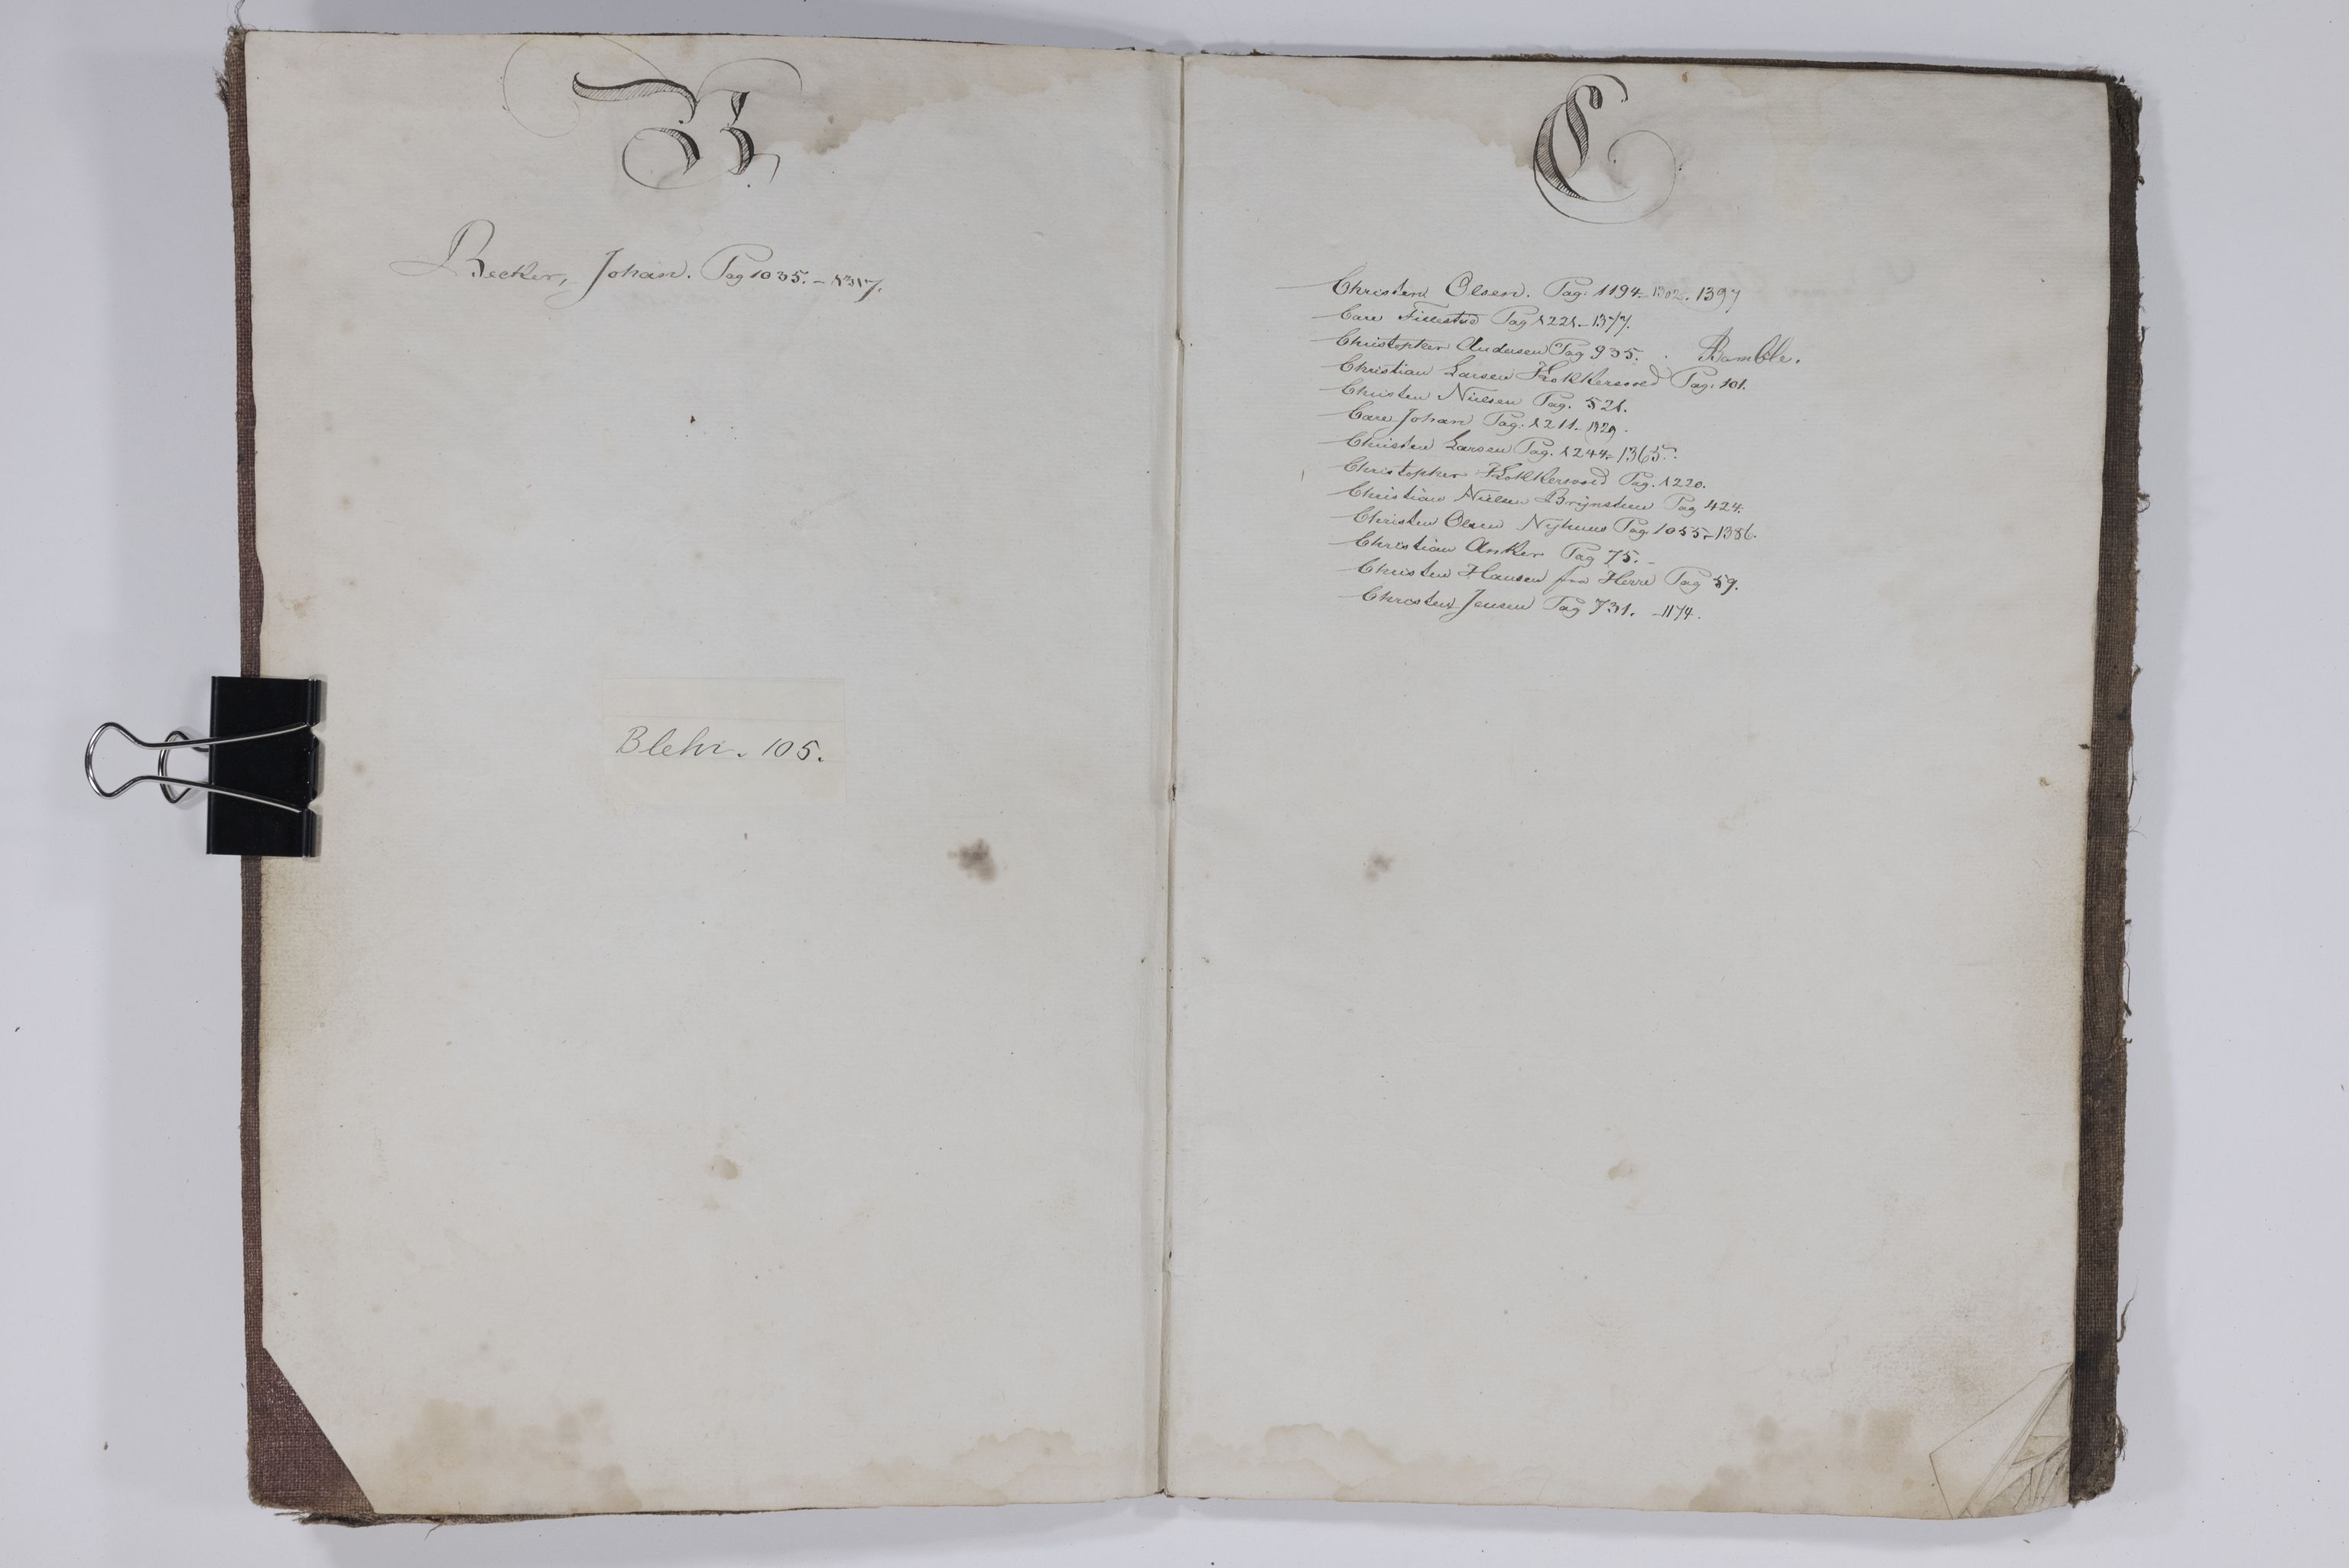 B
Becker, Johan. Pag 1035. – 1317.
Blehr. 105.
C
Christen Olsen. Pag: 1194 – 1302. 1397
Carl Fillestad Pag 1221 – 1377.
Christopher Andersen Pag 935. . Bamble.
Christian Larsen Krokkersved Pag: 101.
Christen Nielsen Pag. 521.
Carl Johan Pag: 1211 – 1329.
Christen Larsen Pag. 1244 – 1365.
Christopher Pag. 1220.
Christian Nielsen Pag 424.
Christen Olsen Nyhuus Pag. 1055 – 1386.
Christian Anker Pag 75. –
Christen Hansen fra Herre Pag 59.
Christen Jensen Pag 731. – 1174.